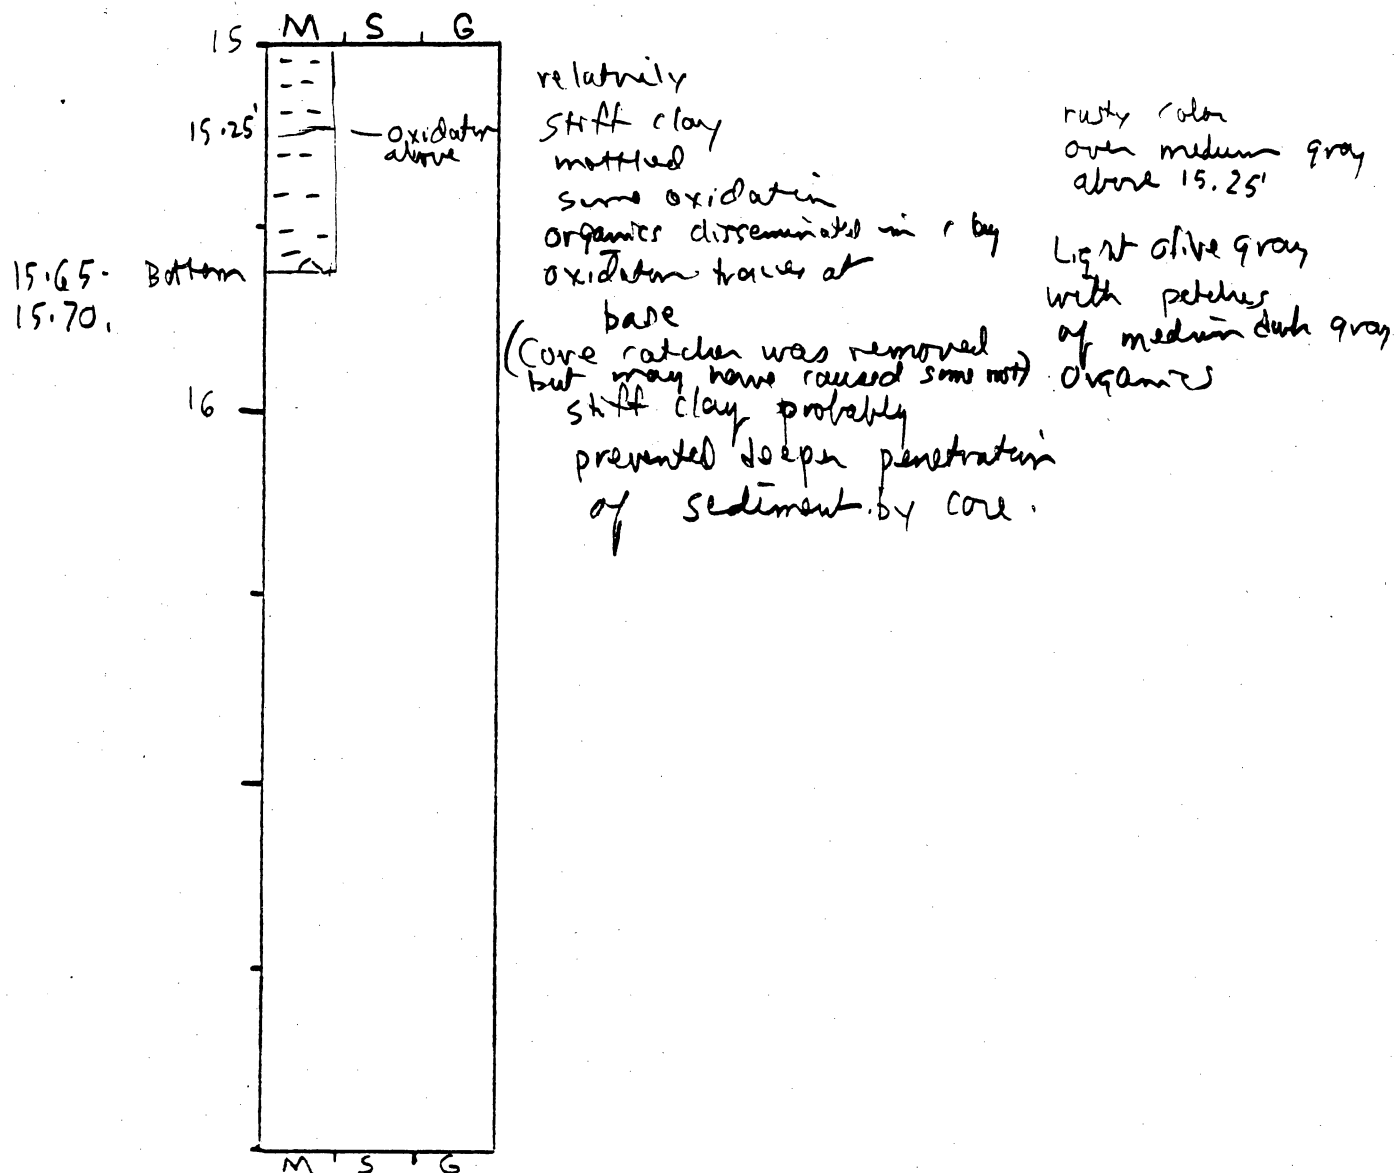 M S G
15
15.25'
oxidation
above
15.65- Bottom
15.70.
16
relatively
stiff clay
mottled
some oxidation
organics disseminated in clay
oxidation traces at
base
(Core catcher was removed
but may have caused some
stiff clay probably
prevented deeper penetration
of sediment by core.
rusty color
over medium gray
above 15.25'
Light olive gray
with patches
of medium dark gray
organics
M S G